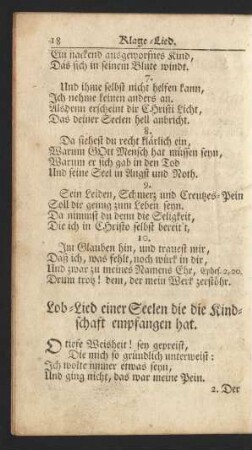 18 Klage-Lied.
Ein nackend ausgeworffnes Kind,
Das sich in seinem Blute windt.
7.
Und ihme selbst nicht helfen kann,
Ich nehme keinen anders an.
Alsdenn erscheint dir CHristi Licht,
Das deiner Seelen hell anbricht.
8.
Da siehest du recht klärlich ein,
Warum GOtt Mensch hat müssen seyn,
Warum er sich gab in den Tod
Und seine Seel in Angst und Noth.
9.
Sein Leiden, Schmerz und Creutzes-Pein
Soll dir genug zum Leben seyn.
Da nimmst du denn die Seligkeit,
Die ich in CHristo selbst bereit't,
10.
Im Glauben hin, und trauest mir,
Daß ich, was fehlt, noch würk in dir,
Und zwar zu meines Namens Ehr, Ephes. 2, 20.
Drum trotz! dem, der mein Werk zerstöhr.
Lob-Lied einer Seelen die die Kind-
schaft empfangen hat.
O tiefe Weisheit! sey gepreist,
Die mich so gründlich unterweist:
Ich wolte immer etwas seyn,
Und ging nicht, das war meine Pein.
2. Der